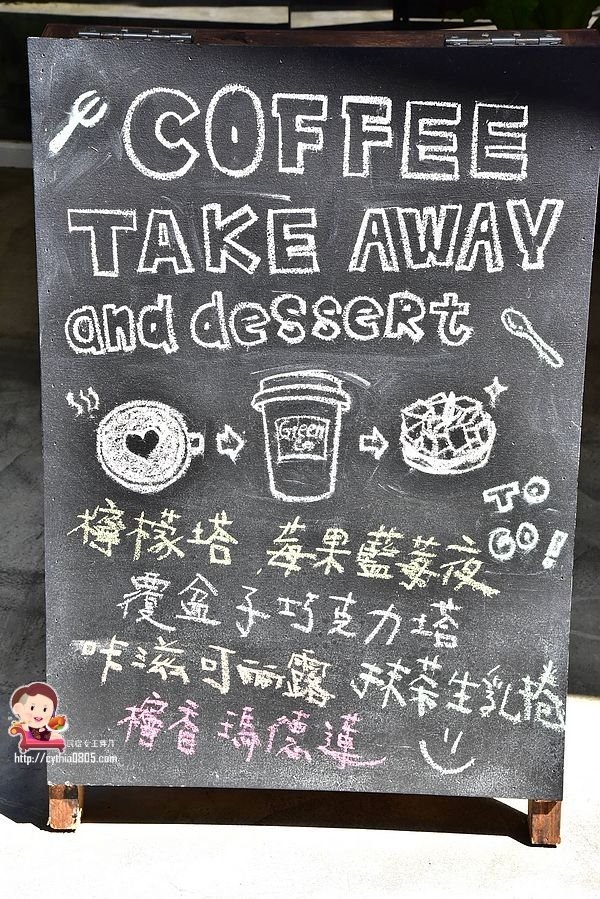 COFFEE
TAKE AWAY
and dessert
Green
TO
GO!
檸檬塔 莓果藍莓夜
覆盆子巧克力塔
咔滋可麗露 抹茶生乳捲
檸香瑪德蓮
http://cythia0805.com